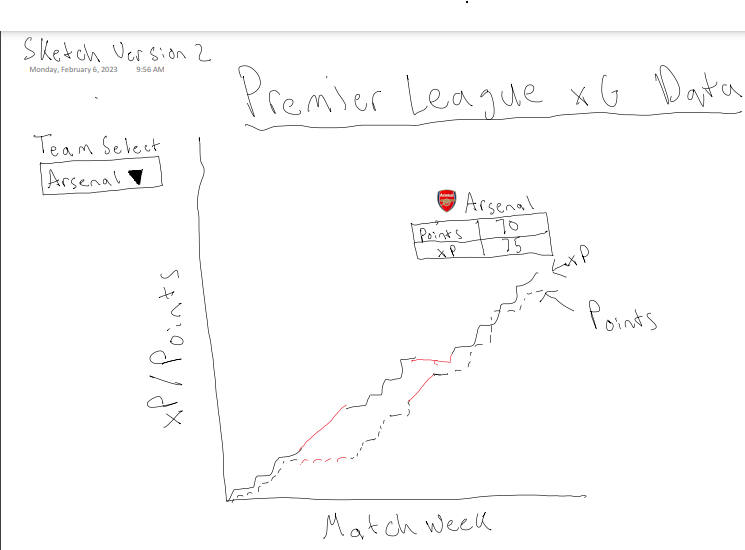 Sketch Version 2
Monday, February 6, 2023 9:56 AM
Premier League xG Data
Team Select
Arsenal ▼
Arsenal
Arsenal
Points 70
xP 75
xP
Points
xP/Points
Match week